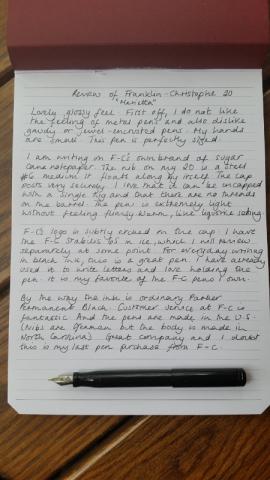 Review of Franklin-Christoph 20
"Marietta"
Lovely glossy feel. First off, I do not like
the feeling of metal pens and also dislike
gaudy or jewel-encrusted pens. My hands
are small. This pen is perfectly sized.
I am writing on F-C's own brand of sugar
cane notepaper. The nib on my 20 is a steel
#6 medium. It floats along by itself. The cap
posts very securely. I love that it can be uncapped
with a single tug and that there are no threads
on the barrel. The pen is extremely light
without feeling flimsy
F-C's logo is subtly etched on the cap. I have
the F-C Stabilis 66 in ice, which I will review
separately at some point. For everyday writing
in black ink, this is a great pen. I have already
used it to write letters and love holding the
pen. It is my favorite of the F-C pens I own.
By the way the ink is ordinary Parker
Permanent Black. Customer service at F-C is
fantastic. And the pens are made in the U.S.
(Nibs are German but the body is made in
North Carolina). Great company and I doubt
this is my last pen purchase from F-C.